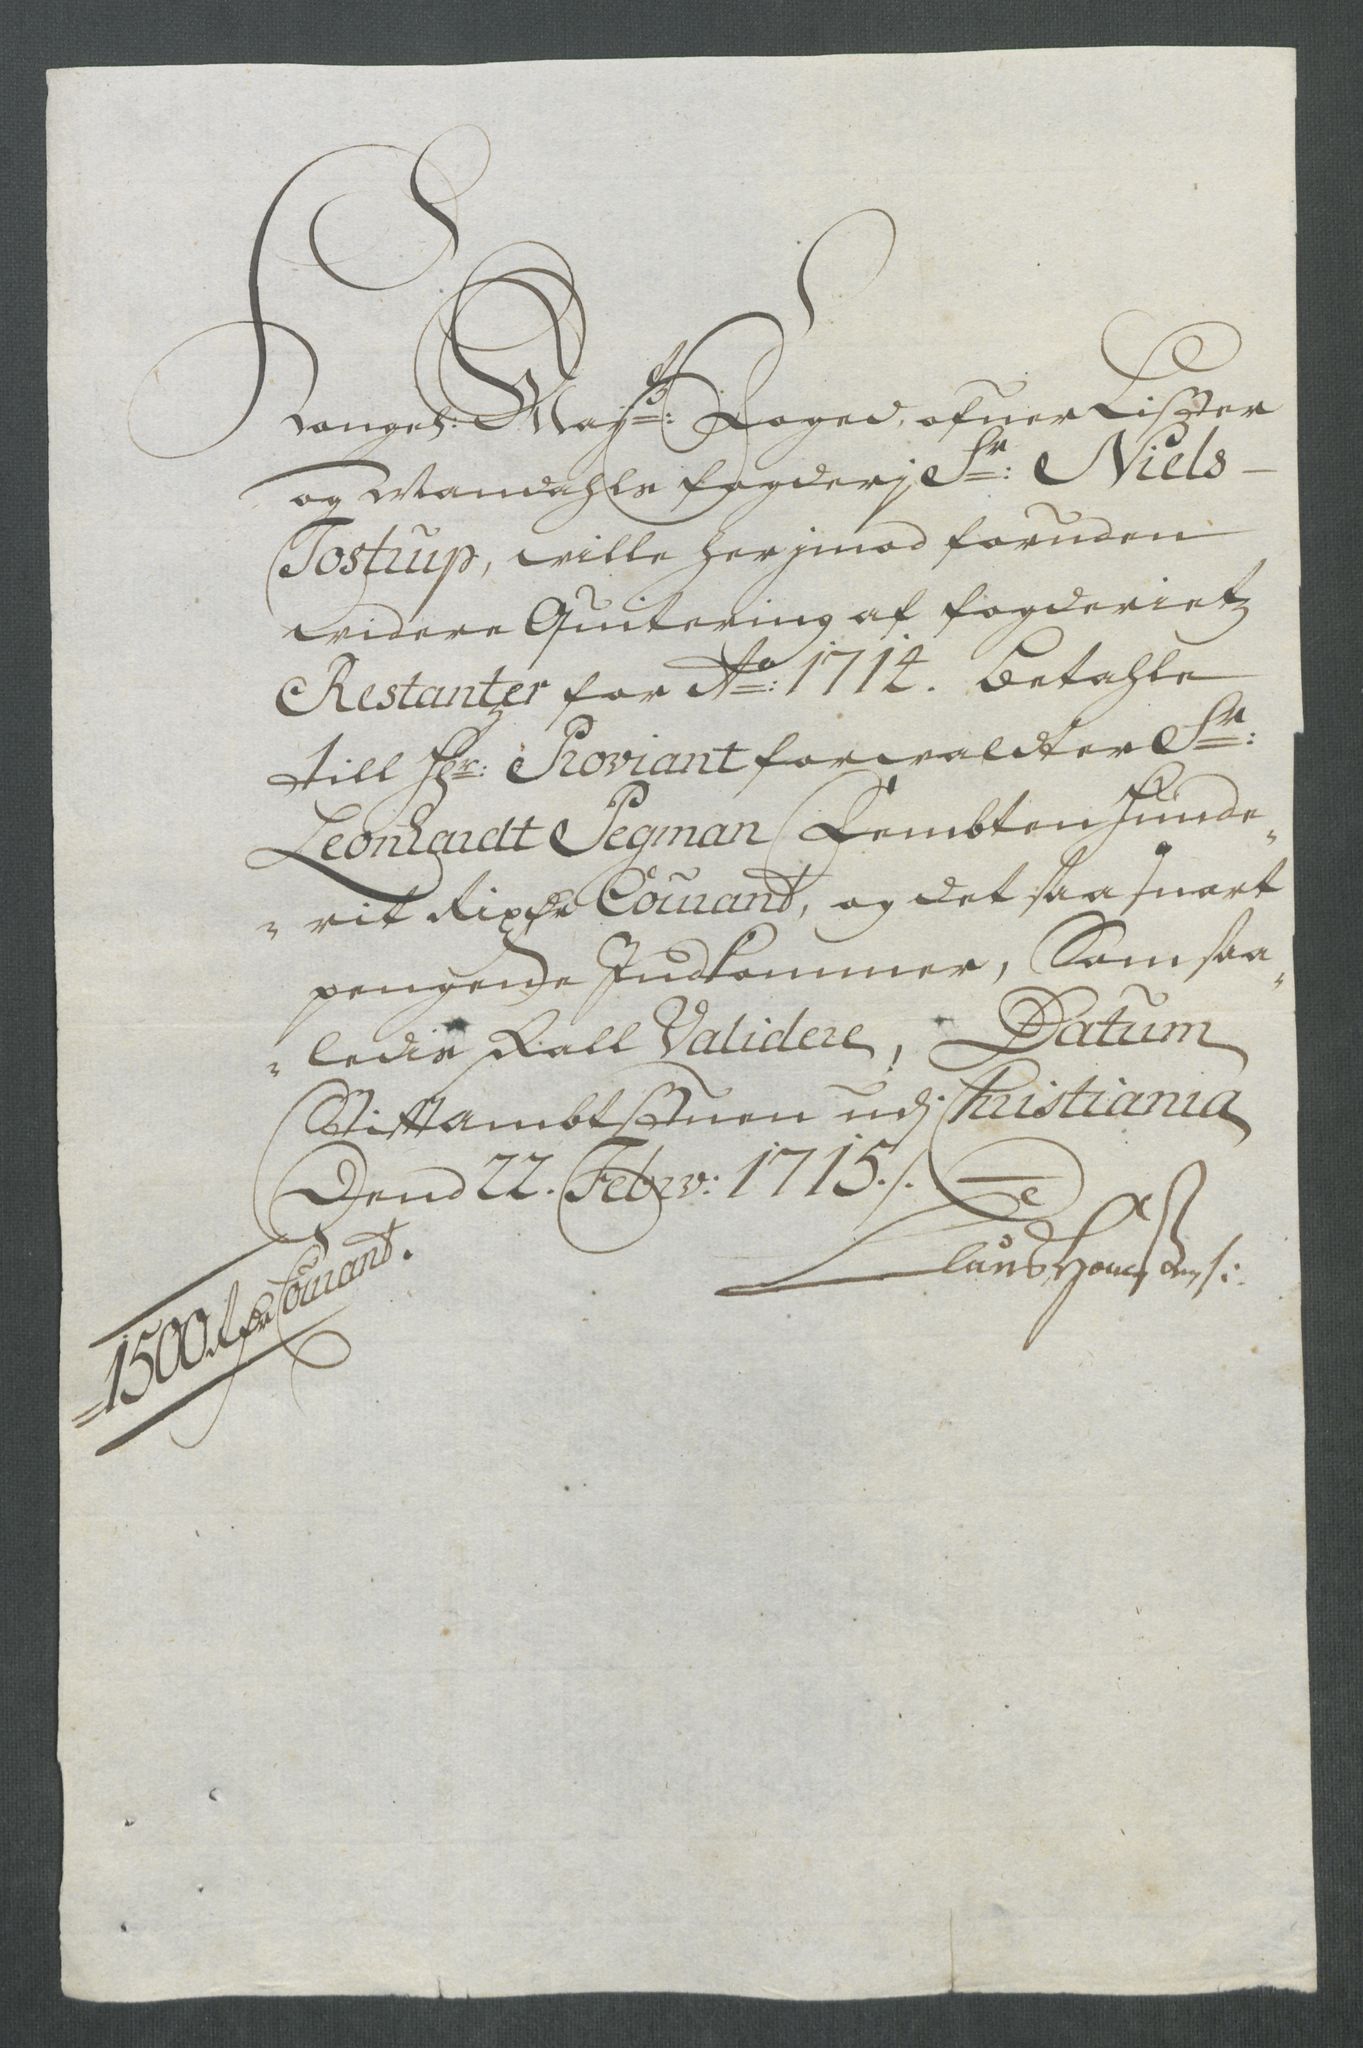 Kongel: Mayts: Foged, ofuer Lister
og Mandahls fogderj Sr: Niels
Tostrup, ville herjmod foruden
videre Quitering af fogderietz
Restantzer for Ao: 1714. betahle
till Hr: Proviant forvaldter Sr:
Leonhardt Pegman Fembten Hunde-
rit Rixdr Courant, og det saa snart
pengende Indkommer, Som saa-
ledis skall Validere, Datum
Stiftambtstuen udj Christiania
Dend 22. Febrv: 1715./.
Claus
1500 Rdr Courant.